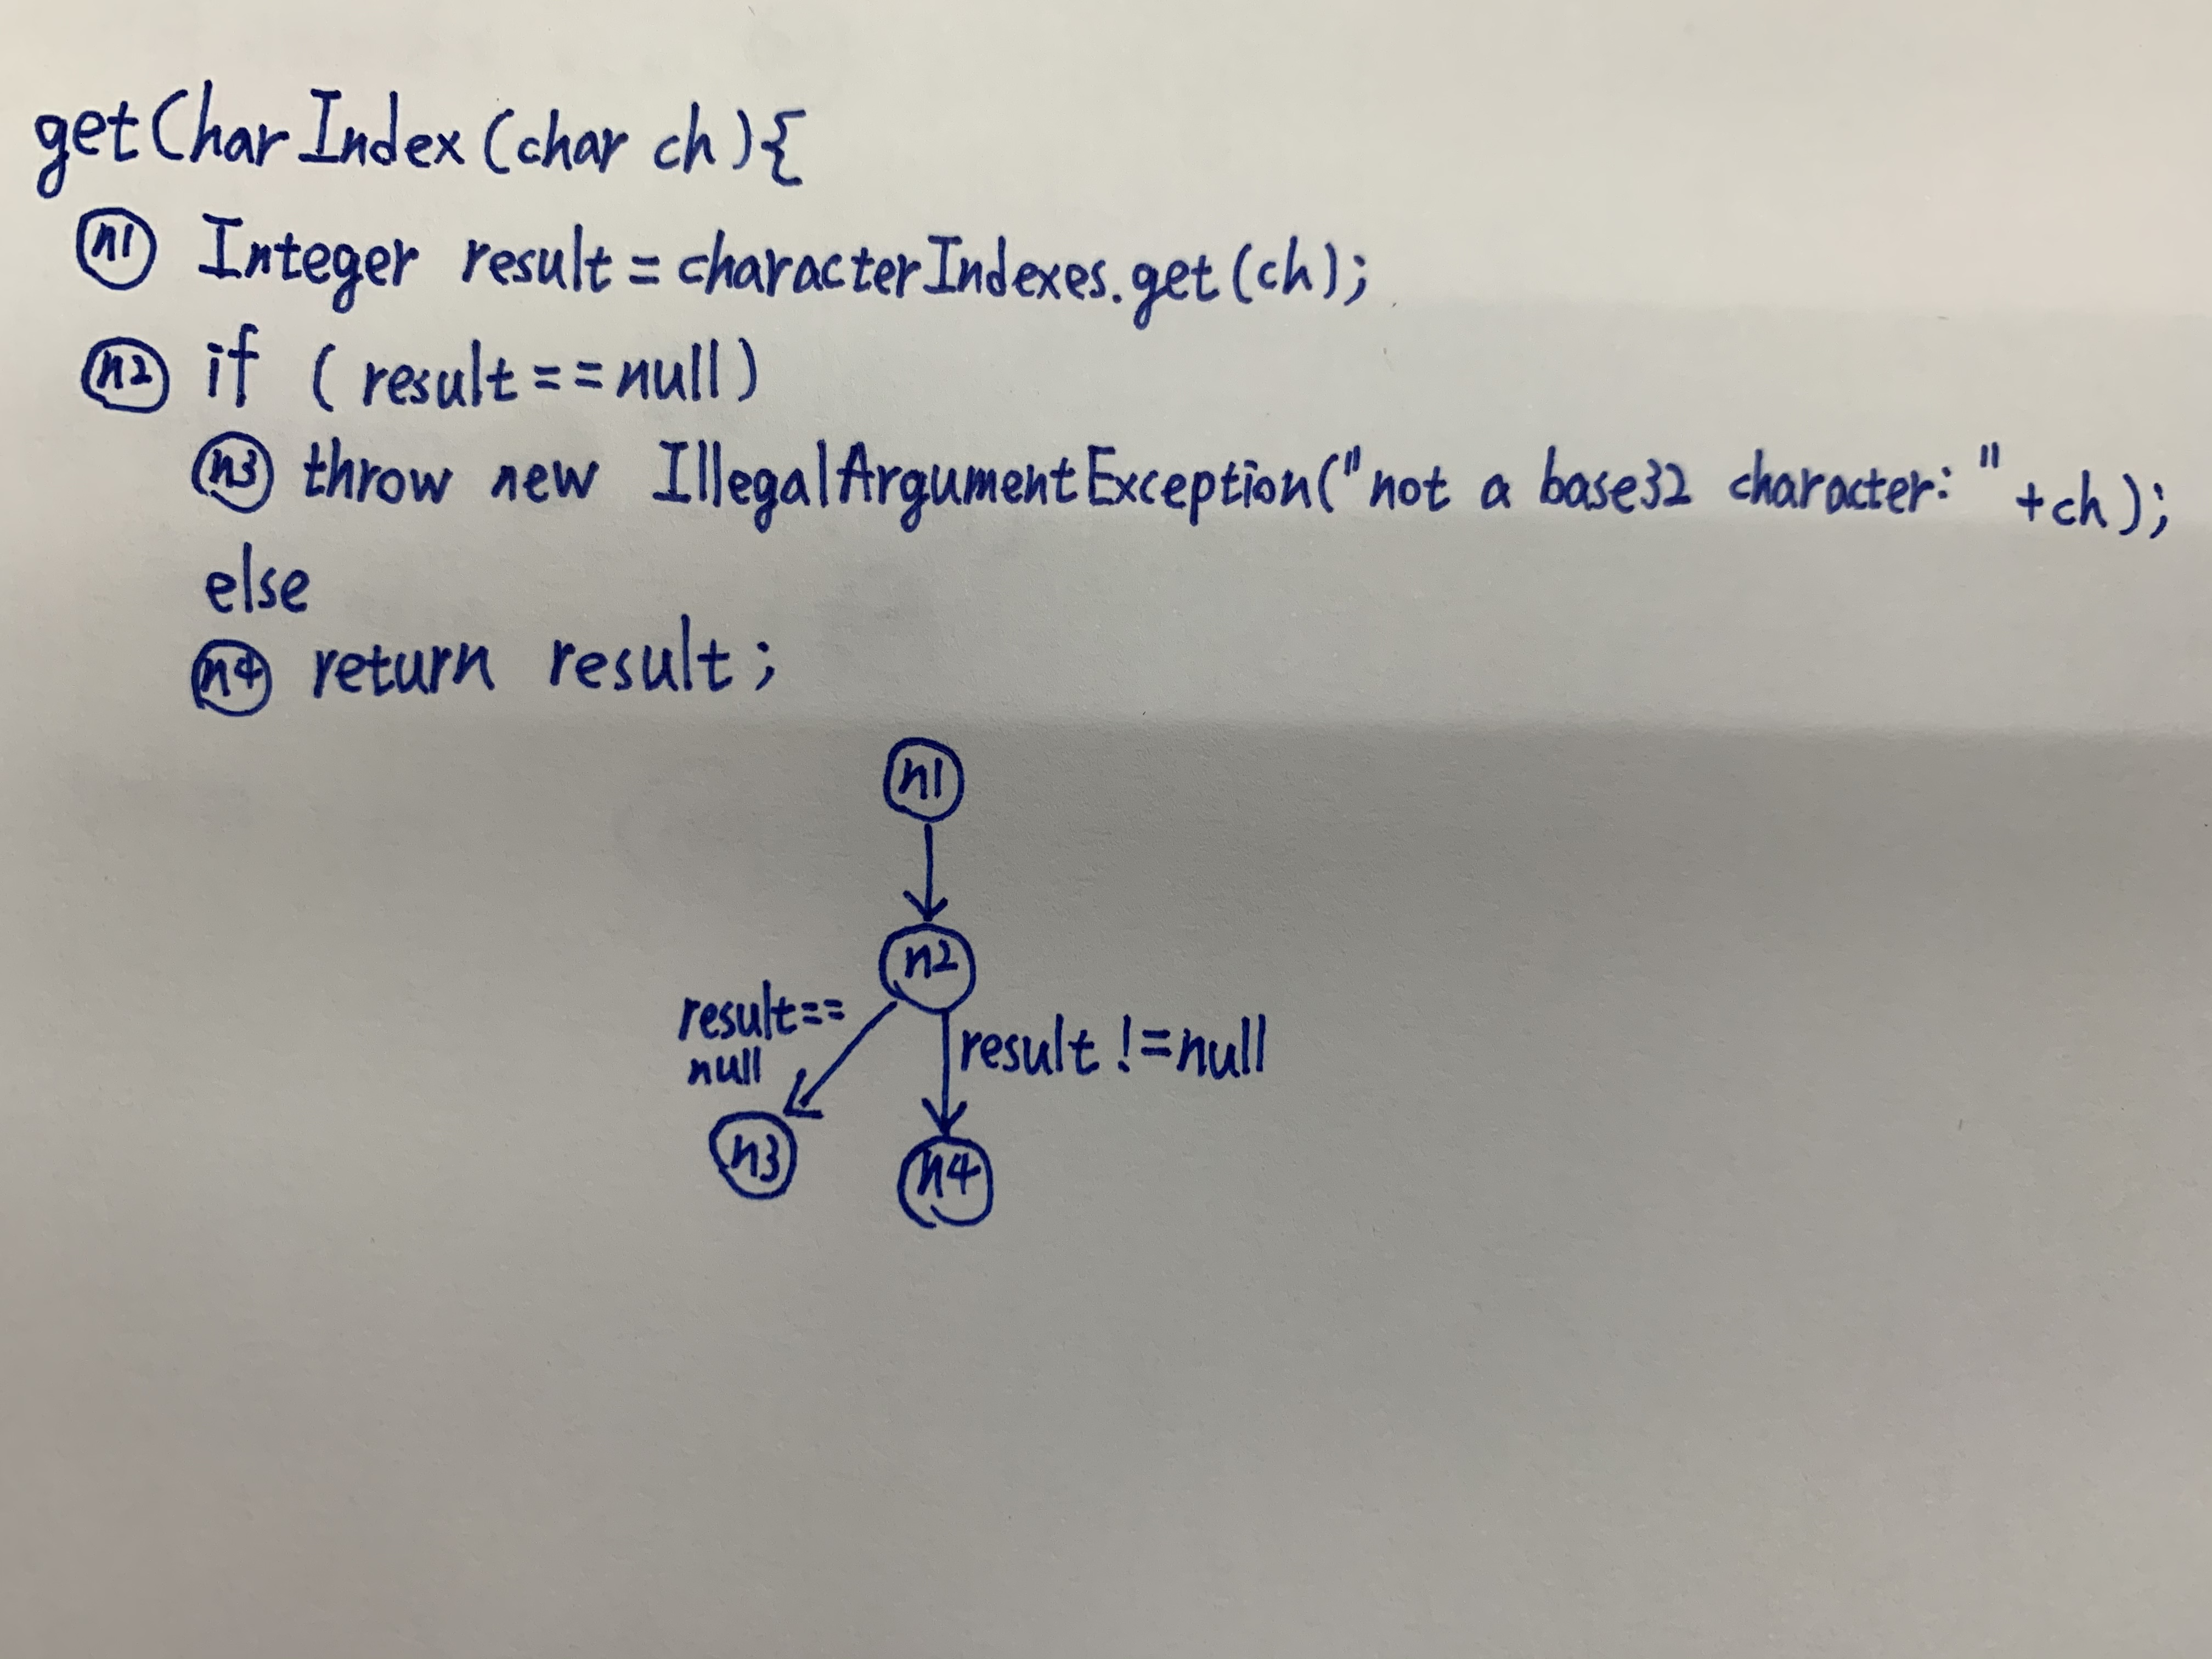 getCharIndex(char ch){
n1 Integer result = characterIndexes.get(ch);
n2 if (result==null)
n3 throw new IllegalArgumentException("not a base32 character: "+ch);
else
n4 return result;
n1
n2
result==
null
result !=null
n3
n4